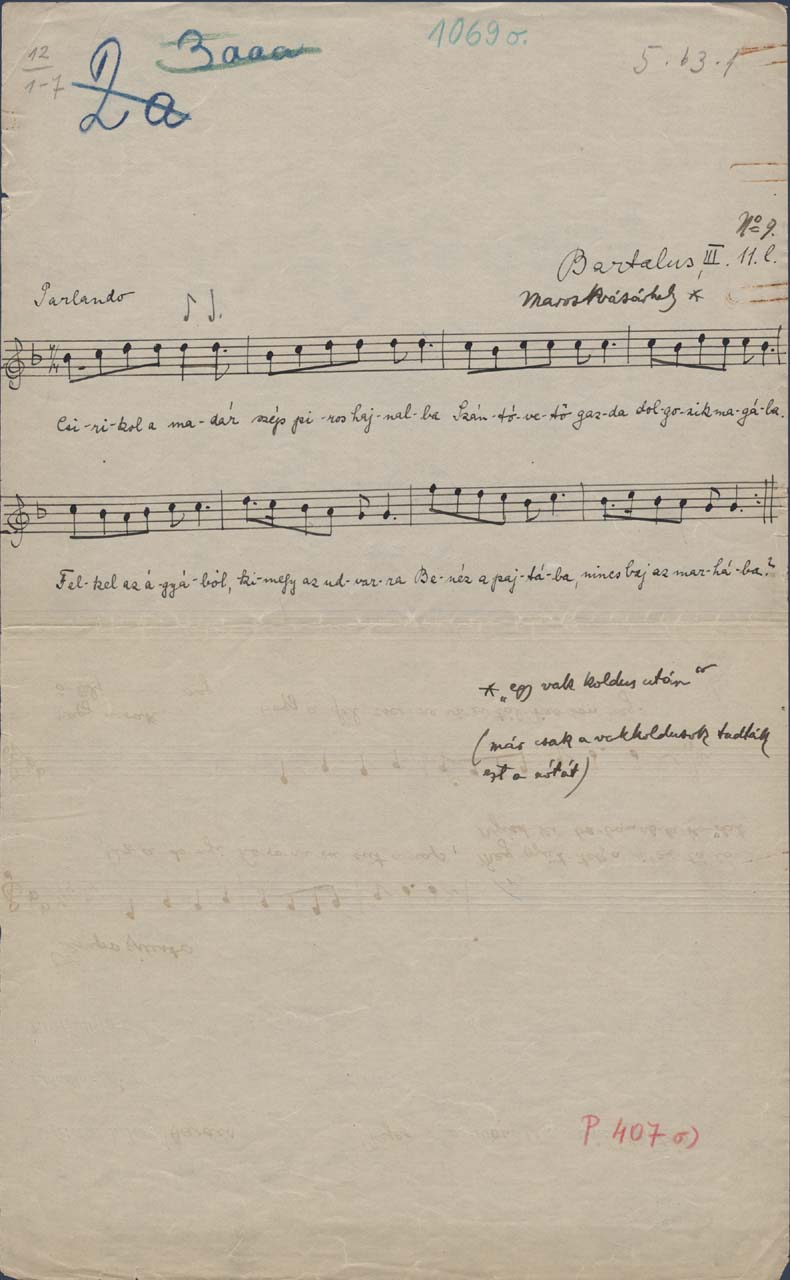 12
1-7
2a
3aaa
1069 o.
5. b3. 1
No 9.
Bartalus, III. 11. l.
Marosvásárhely *
Parlando
Csi-ri-kol a ma-dár szép pi-ros haj-nal-ba Szán-tó-ve-tő gaz-da dol-go-zik ma-gá-ba.
Fel-kel az á-gyá-ból, ki-megy az ud-var-ra Be-néz a paj-tá-ba, nincs baj az mar-há-ba?
* "egy vak koldus után"
(már csak a vakkoldusok tudták
ezt a nótát)
P. 407 a)